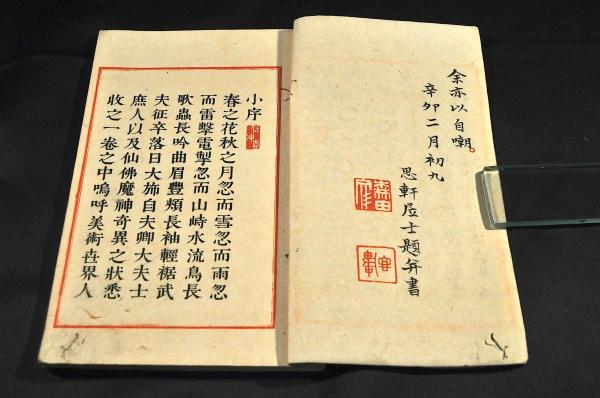 余亦以自嘲
辛卯二月初九
思軒居士題并書
小序
春之花秋之月忽而雪忽而雨忽
而雷擊電掣忽而山峙水流鳥長
歌蟲長吟曲眉豐頰長袖輕裾武
夫征卒落日大旆自夫卿大夫士
庶人以及仙佛魔神奇異之狀悉
收之一卷之中嗚呼美術世界人